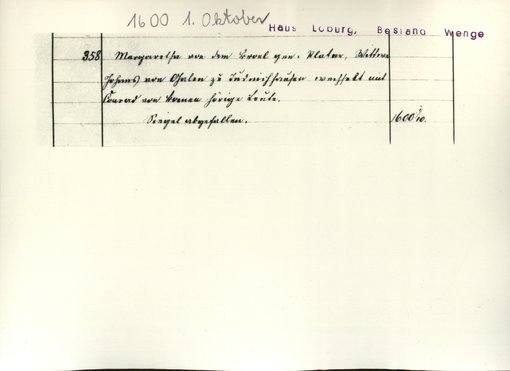 1600 1. Oktober
Haus Loburg, Bestand Wenge
358 Margaretha von dem Broel gen. Plater, Wittwe
Johans von Ohalen zu wechselt mit
Conrad von hörige Leute.
Siegel abgefallen. 1600 1/10.